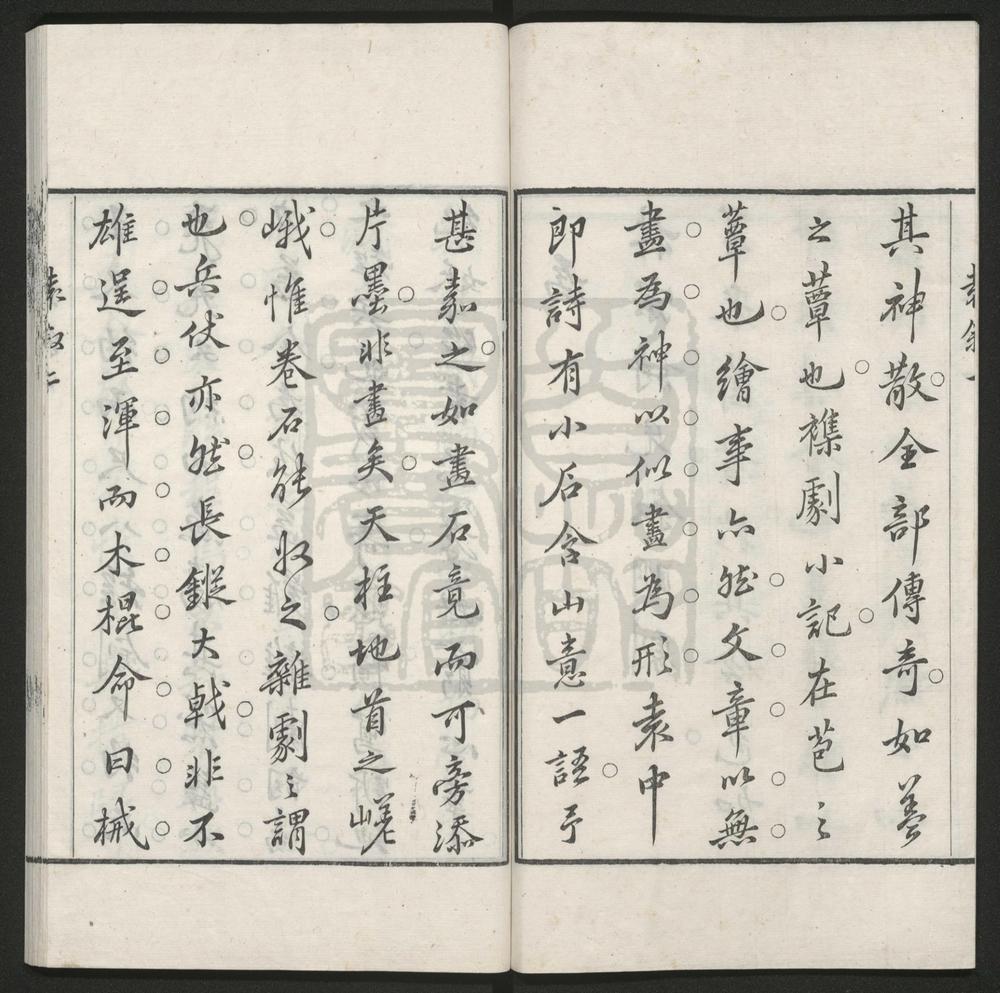 袁敘一
其神散全部傳奇如養
之蕈也襍劇小記在苞之
蕈也繪事亦然文章以無
畫為神以似畫為形袁中
郎詩有小石含山意一語予
甚嘉之如畫石竟而可旁添
片墨非畫矣天柱地首之嵯
峨惟卷石能收之雜劇之謂
也兵伏亦然長鏦大戟非不
雄逞至渾而木棍命曰械
袁敘二